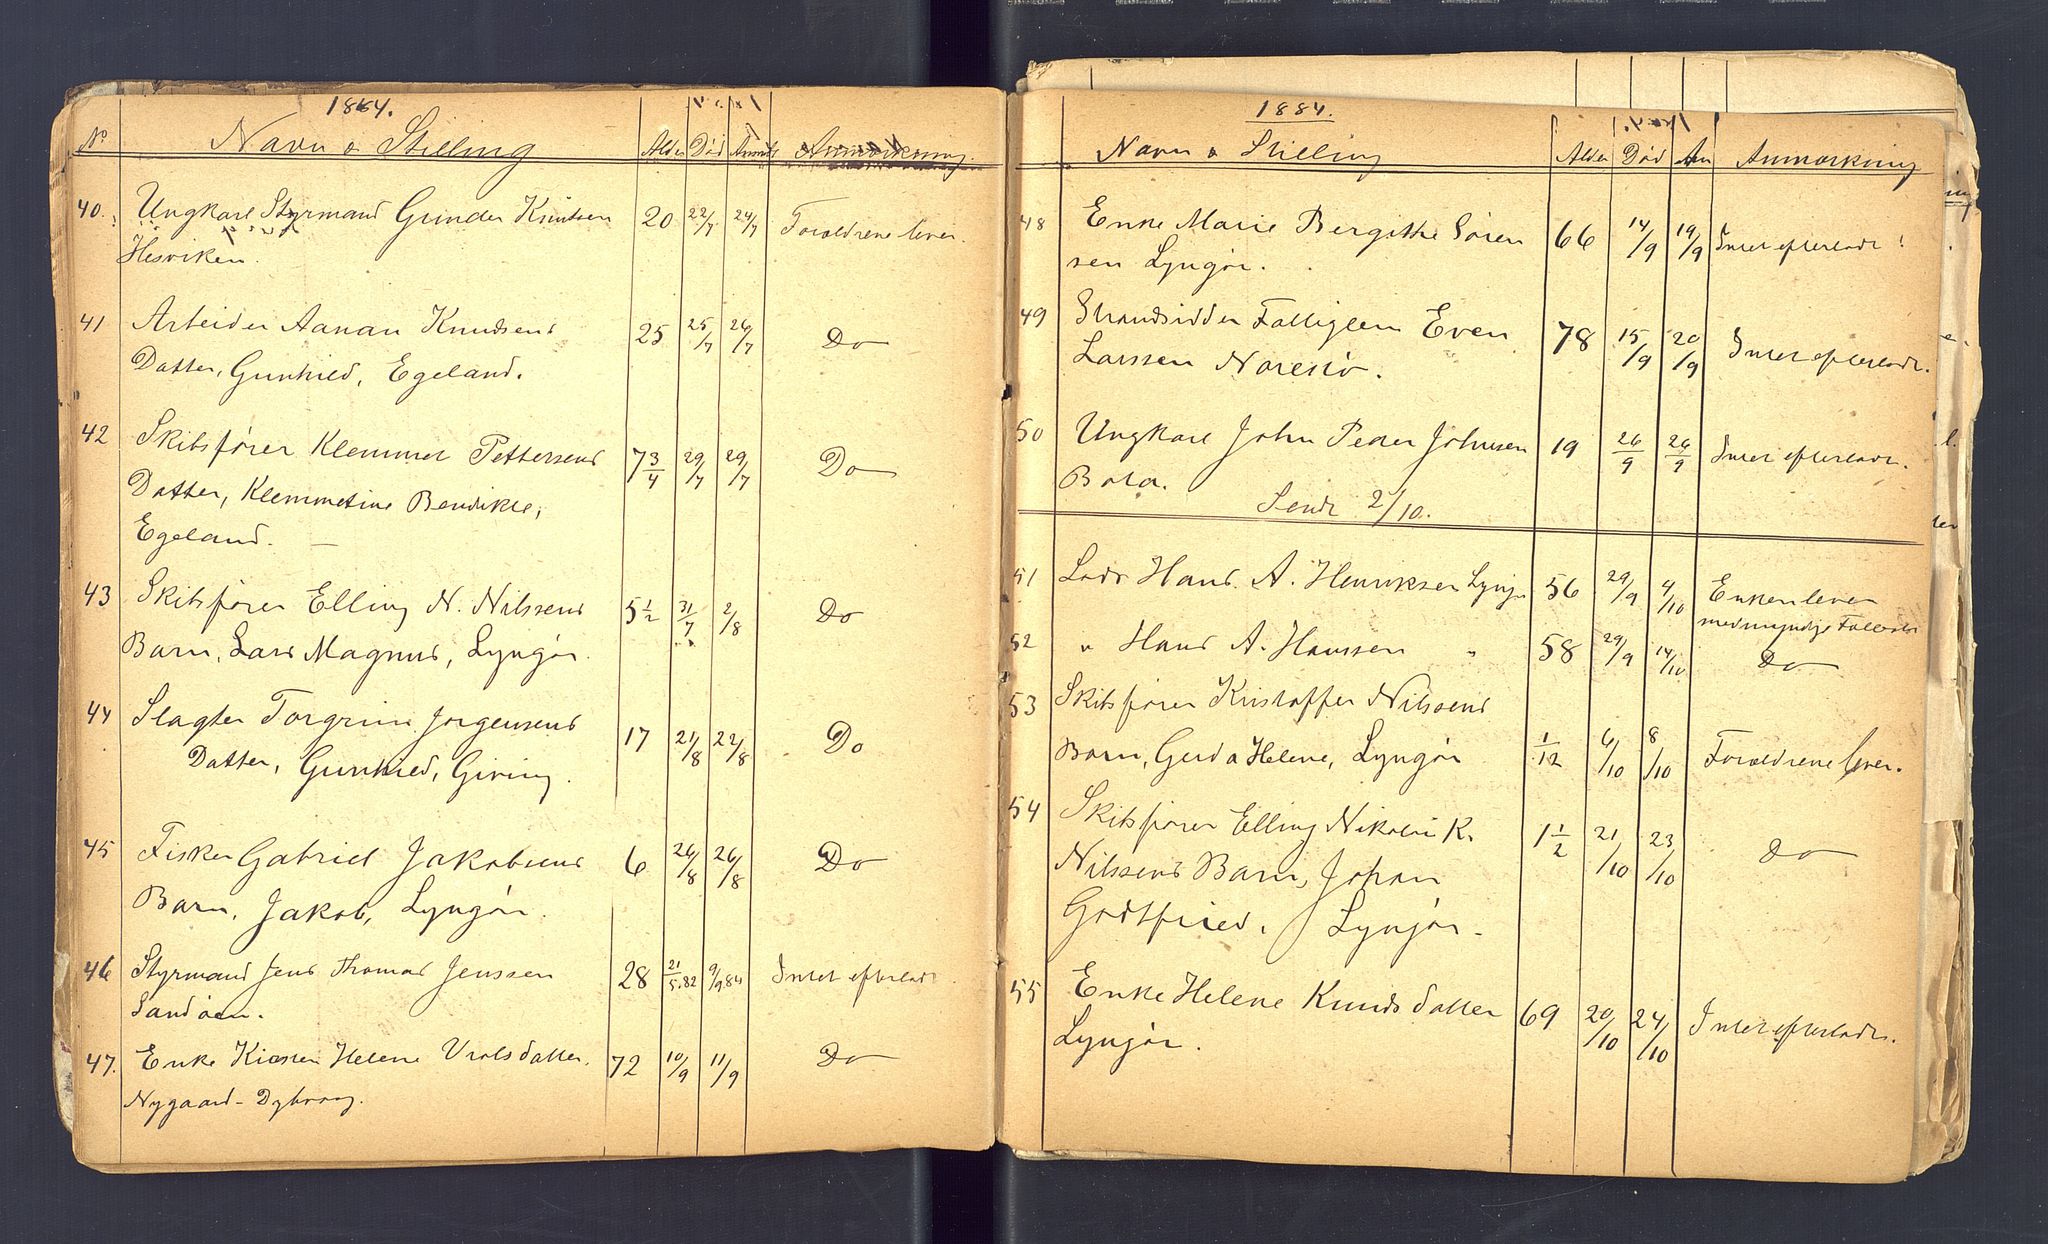 1884.
No Navn & Stilling Alder Død Anmeldt Anmærkning
40. Ungkarl Styrmand Gunder Knutsen 20 22/7 24/7 Forældrene lever.
Hesviken.
41 Arbeider Aanan Knudsens 25 25/7 26/7 Do
Datter, Gunhild, Egeland.
42 Skibsfører Klemmet Pettersens 7 3/4 29/7 29/7 Do
Datter, Klemmetine Bendikte,
Egeland. —
43 Skibsfører Elling N. Nilssens 5 1/2 31/7 2/8 Do
Barn, Lars Magnus, Lyngør.
44 Slagter Torgrim Jørgensens 17 21/8 22/8 Do
Datter, Gunhild, Giving.
45 Fisker Gabriel Jakobsens 6 26/8 26/8 Do
Barn, Jakob, Lyngør.
46 Styrmand Jens Thomas Jenssen 28 21/5.82 9/9.84 Intet efterladt
Sandøen.
47. Enke Kirsten Helene Vrolsdatter. 72 10/9 11/9 Do
Nygaard - Dybvaag.
1884.
Navn & Stilling Alder Død An Anmærkning
48 Enke Marie Bergitthe Søren 66 14/9 19/9 Intet efterladt!
sen Lyngør.
49 Strandsidder Fattiglem Even 78 15/9 20/9 Intet efterladt.
Larssen Naresø.
50 Ungkarl John Peder Johnsen 19 26/9 26/9 Intet efterladt.
Bota.
Sendt 2/10.
51 Lods Hans A. Henriksen Lyng. 56 29/9 4/10 Enken lever
med myndige
52 " Hans A. Hanssen " 58 29/9 14/10 Do
53 Skibsfører Kristoffer Nilssens
Barn, Gerda Helene, Lyngør 1/12 6/10 8/10 Forældrene lever.
54 Skibsfører Elling Nikolai K. 1 1/2 21/10 23/10 Do
Nilssens Barn, Johan
Godtfried. Lyngør.
55 Enke Helene Knudsdatter 69 20/10 24/10 Intet efterladt.
Lyngør.